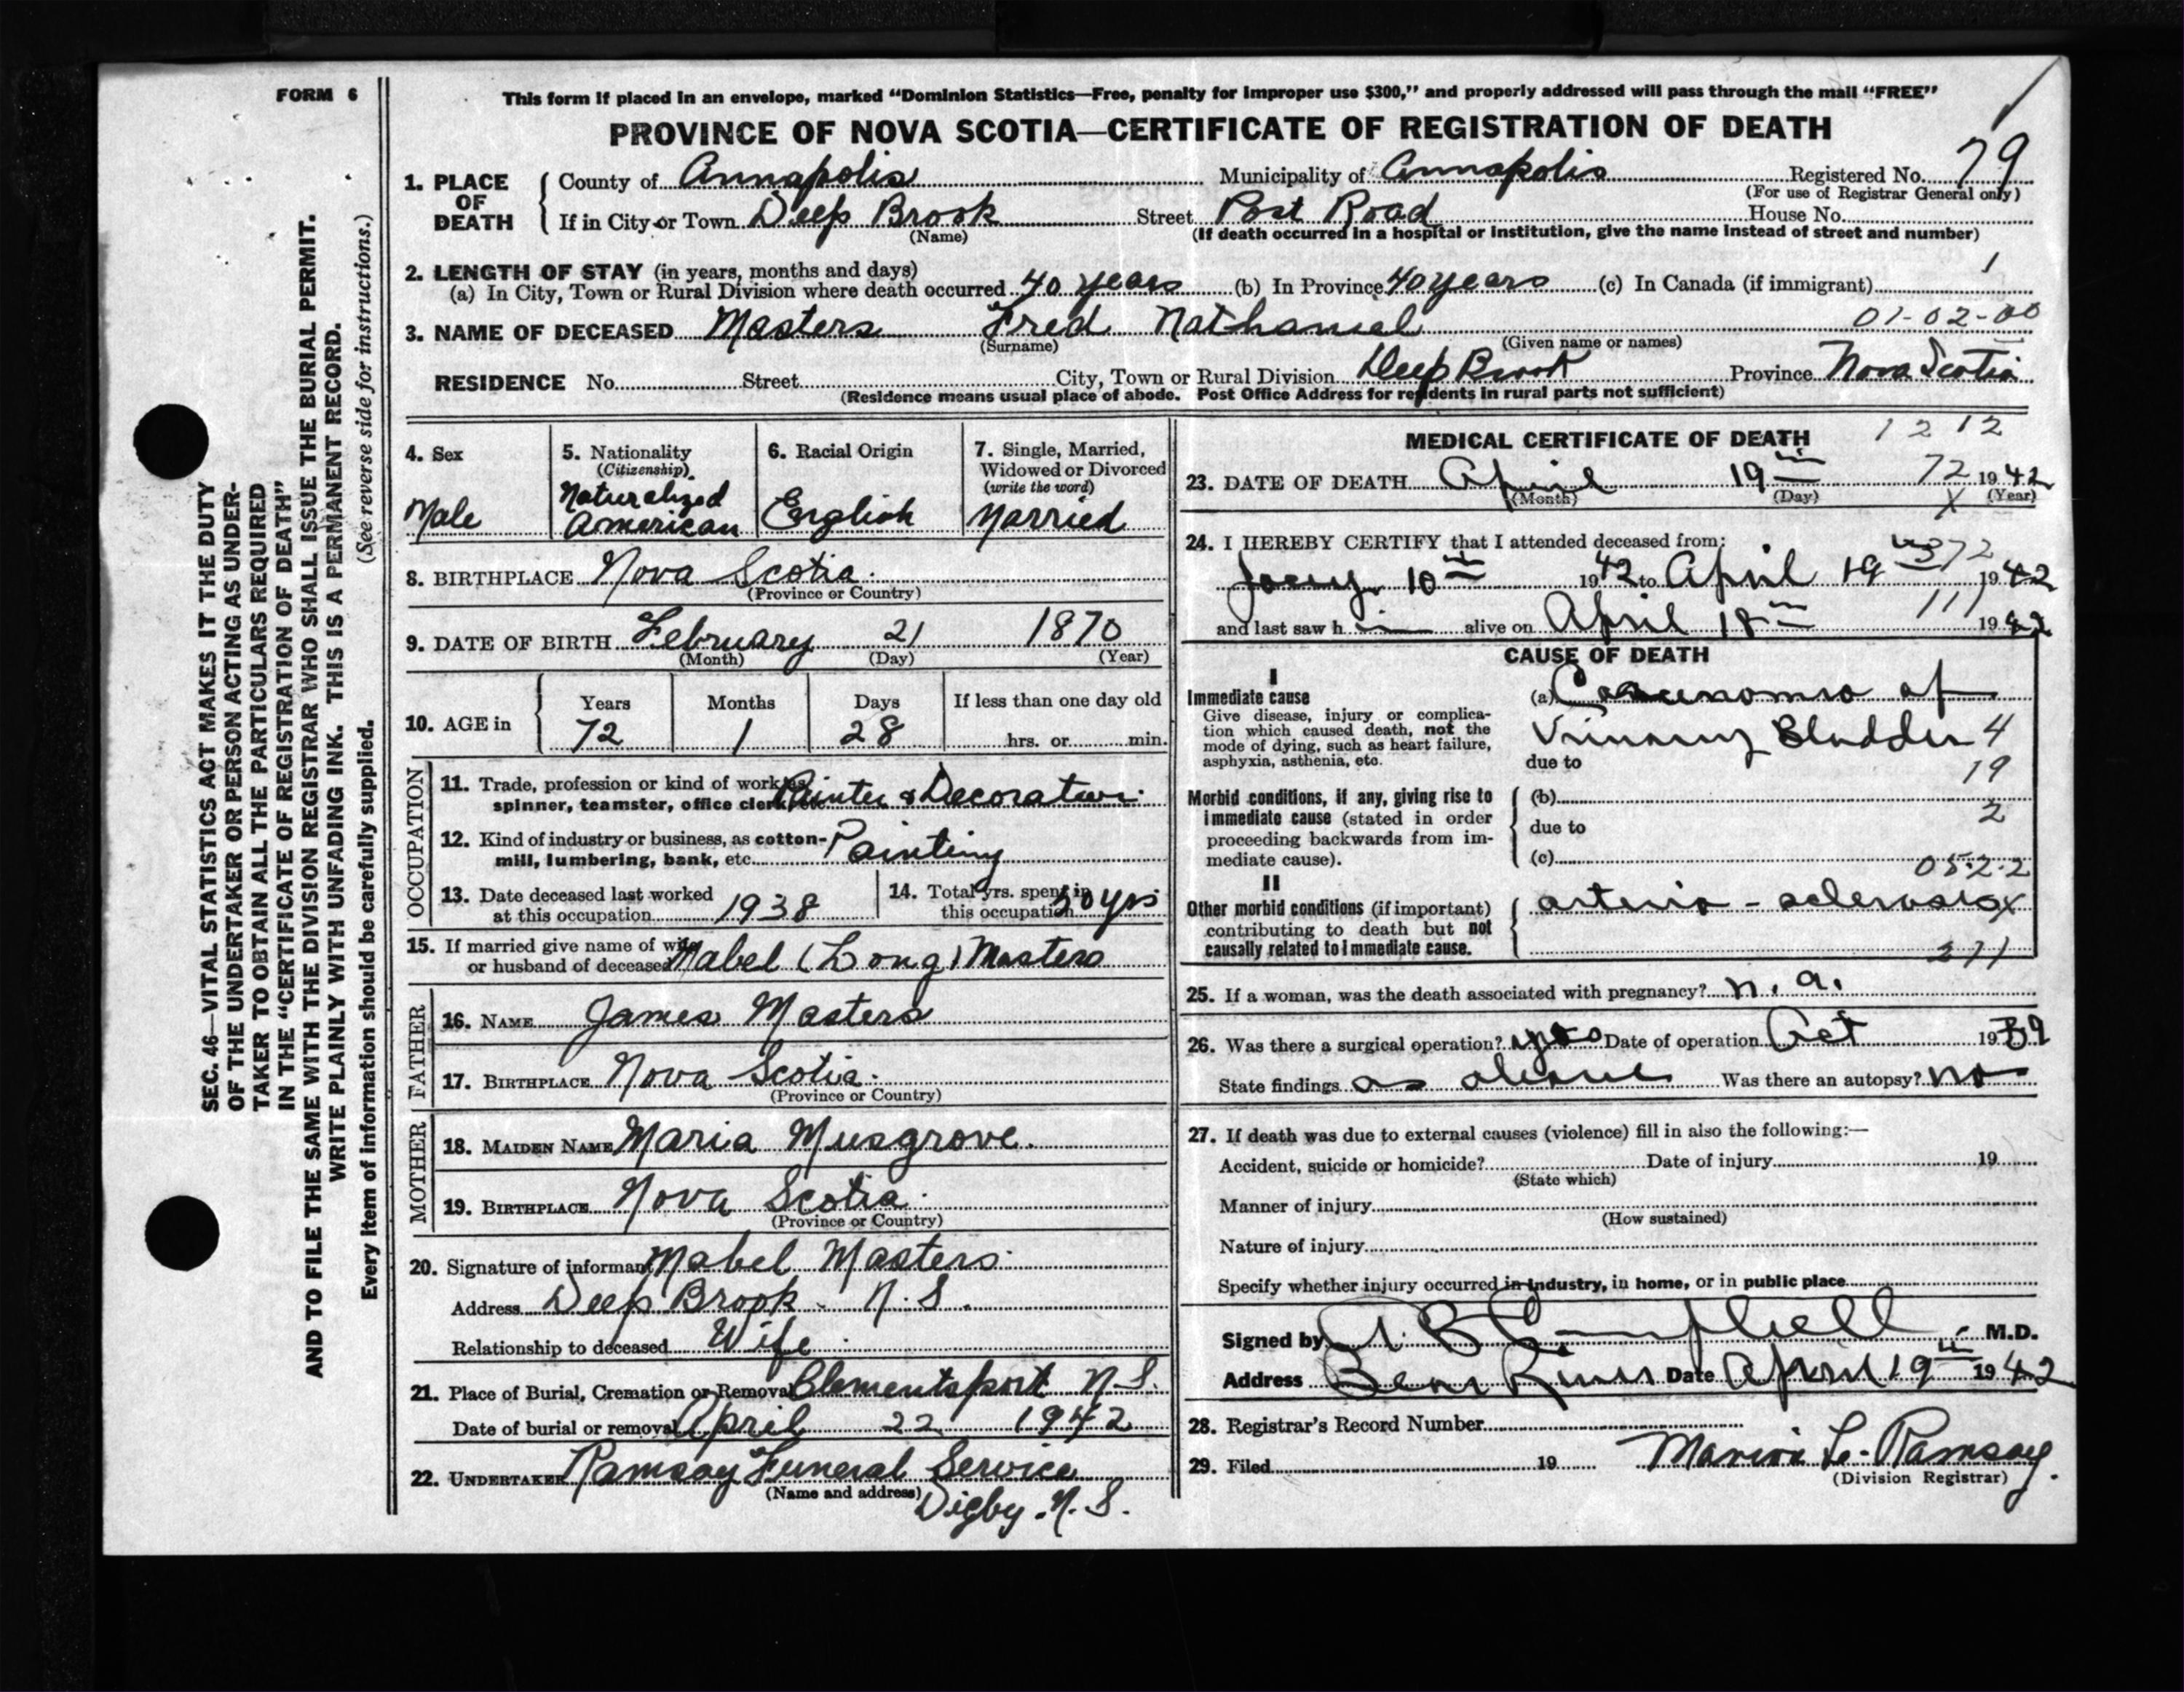 FORM 6
This form if placed in an envelope, marked “Dominion Statistics—Free, penalty for improper use $300,” and properly addressed will pass through the mail “FREE”
PROVINCE OF NOVA SCOTIA—CERTIFICATE OF REGISTRATION OF DEATH
SEC. 46—VITAL STATISTICS ACT MAKES IT THE DUTY
OF THE UNDERTAKER OR PERSON ACTING AS UNDER-
TAKER TO OBTAIN ALL THE PARTICULARS REQUIRED
IN THE “CERTIFICATE OF REGISTRATION OF DEATH”
AND TO FILE THE SAME WITH THE DIVISION REGISTRAR WHO SHALL ISSUE THE BURIAL PERMIT.
WRITE PLAINLY WITH UNFADING INK. THIS IS A PERMANENT RECORD.
Every item of information should be carefully supplied. (See reverse side for instructions.)
1. PLACE OF DEATH
County of Annapolis Municipality of Annapolis Registered No. 79
(For use of Registrar General only)
If in City or Town Deep Brook Street Post Road House No.
(Name) (If death occurred in a hospital or institution, give the name instead of street and number)
2. LENGTH OF STAY (in years, months and days) 1
(a) In City, Town or Rural Division where death occurred 40 years (b) In Province 40 years (c) In Canada (if immigrant)
3. NAME OF DECEASED Masters Fred Nathaniel 01-02-00
(Surname) (Given name or names)
RESIDENCE No. Street City, Town or Rural Division Deep Brook Province Nova Scotia
(Residence means usual place of abode. Post Office Address for residents in rural parts not sufficient)
4. Sex
Male
5. Nationality
(Citizenship)
Naturalized
American
6. Racial Origin
English
7. Single, Married,
Widowed or Divorced
(write the word)
Married
8. BIRTHPLACE Nova Scotia
(Province or Country)
9. DATE OF BIRTH February 21 1870
(Month) (Day) (Year)
10. AGE in
Years Months Days If less than one day old
72 1 28 hrs. or min.
OCCUPATION
11. Trade, profession or kind of work as
spinner, teamster, office clerk Painter & Decorator
12. Kind of industry or business, as cotton-
mill, lumbering, bank, etc. Painting
13. Date deceased last worked
at this occupation 1938
14. Total yrs. spent in
this occupation 50 yrs
15. If married give name of wife
or husband of deceased Mabel (Long) Masters
FATHER
16. NAME James Masters
17. BIRTHPLACE Nova Scotia
(Province or Country)
MOTHER
18. MAIDEN NAME Maria Musgrove
19. BIRTHPLACE Nova Scotia
(Province or Country)
20. Signature of informant Mabel Masters
Address Deep Brook N.S.
Relationship to deceased Wife
21. Place of Burial, Cremation or Removal Clementsport N.S.
Date of burial or removal April 22 1942
22. UNDERTAKER Ramsay Funeral Service
(Name and address) Digby. N.S.
MEDICAL CERTIFICATE OF DEATH 1212
23. DATE OF DEATH April 19th 72 1942
(Month) (Day) X (Year)
24. I HEREBY CERTIFY that I attended deceased from:
10th 1942 to April 19th 372 1942
and last saw h im alive on April 18th 111 1942
CAUSE OF DEATH
I
Immediate cause
Give disease, injury or complica-
tion which caused death, not the
mode of dying, such as heart failure,
asphyxia, asthenia, etc.
(a) Carcinoma of
Urinary Bladder 4
due to 19
Morbid conditions, if any, giving rise to
immediate cause (stated in order
proceeding backwards from im-
mediate cause).
(b)
due to 2
(c) 052.2
II
Other morbid conditions (if important)
contributing to death but not
causally related to immediate cause.
arterio-sclerosis
271
25. If a woman, was the death associated with pregnancy? n.a.
26. Was there a surgical operation? yes Date of operation Oct 1939
State findings as above Was there an autopsy? no
27. If death was due to external causes (violence) fill in also the following:—
Accident, suicide or homicide? Date of injury 19
(State which)
Manner of injury
(How sustained)
Nature of injury
Specify whether injury occurred in industry, in home, or in public place
Signed by A. B. Campbell M.D.
Address Bear River Date April 19th 1942
28. Registrar's Record Number
29. Filed 19 Ramsay.
(Division Registrar)